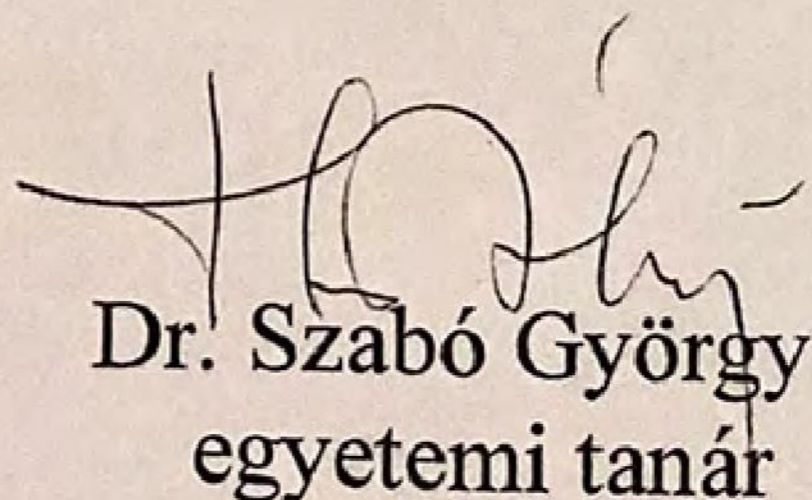 Dr. Szabó György
egyetemi tanár